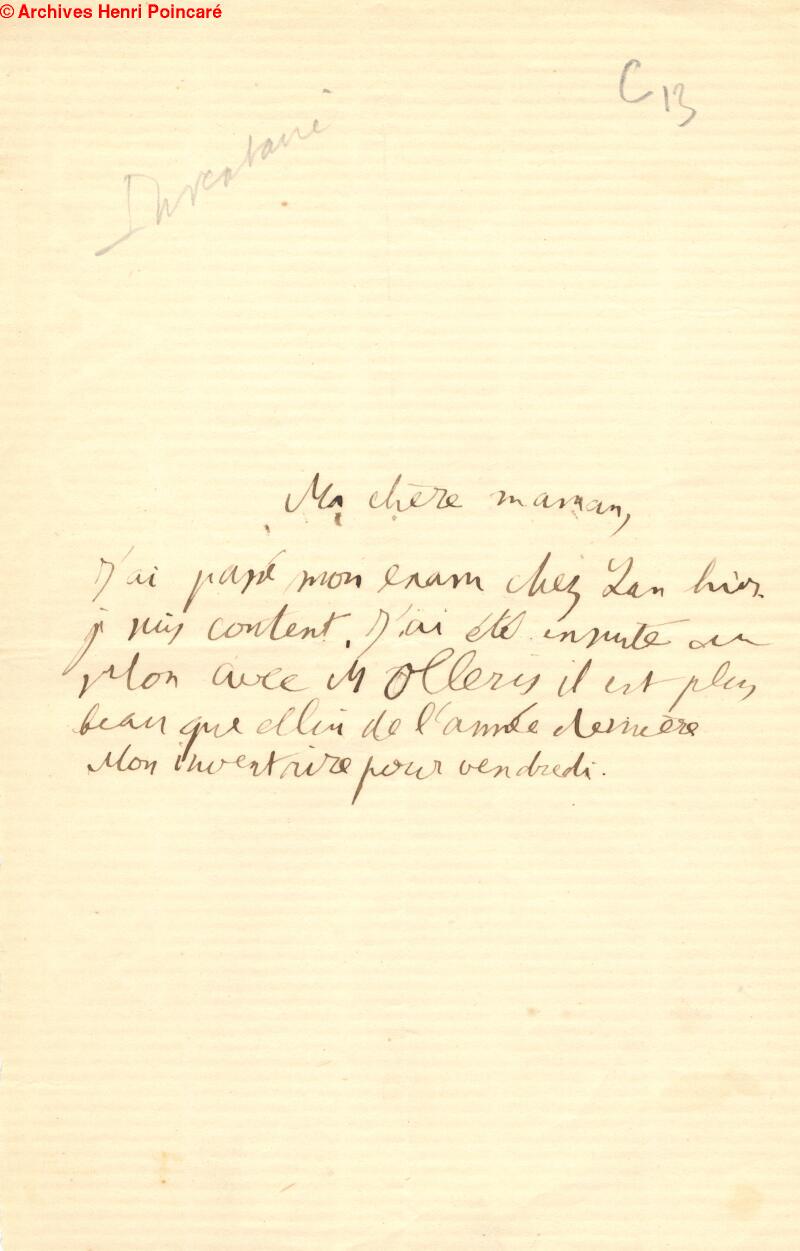 © Archives Henri Poincaré
C 13
Inventaire
Ma chère maman,
J'ai passé mon exam chez Lan hier.
je suis content. J'ai été ensuite au
Salon avec M Olleris il est plus
beau que celui de l'année dernière
Mon inventaire pour vendredi.